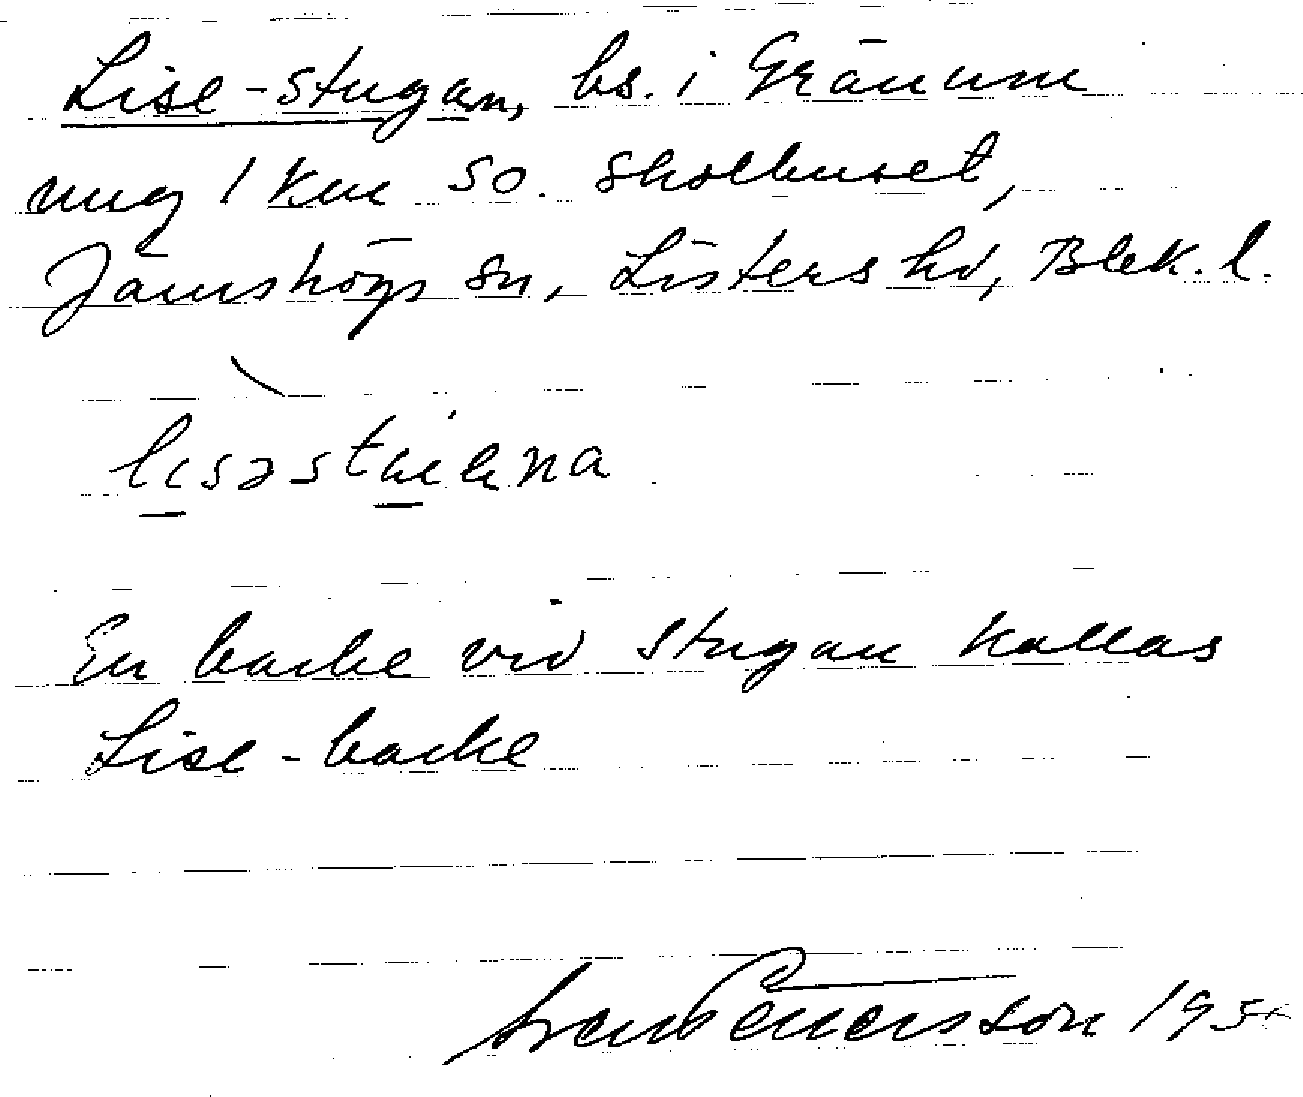 Lise-stugan, bs. i Gränum
ung 1 km so. skolhuset,
Jämshögs sn, Listers hd, Blek. l.
En backe vid stugan kallas
Lise-backe